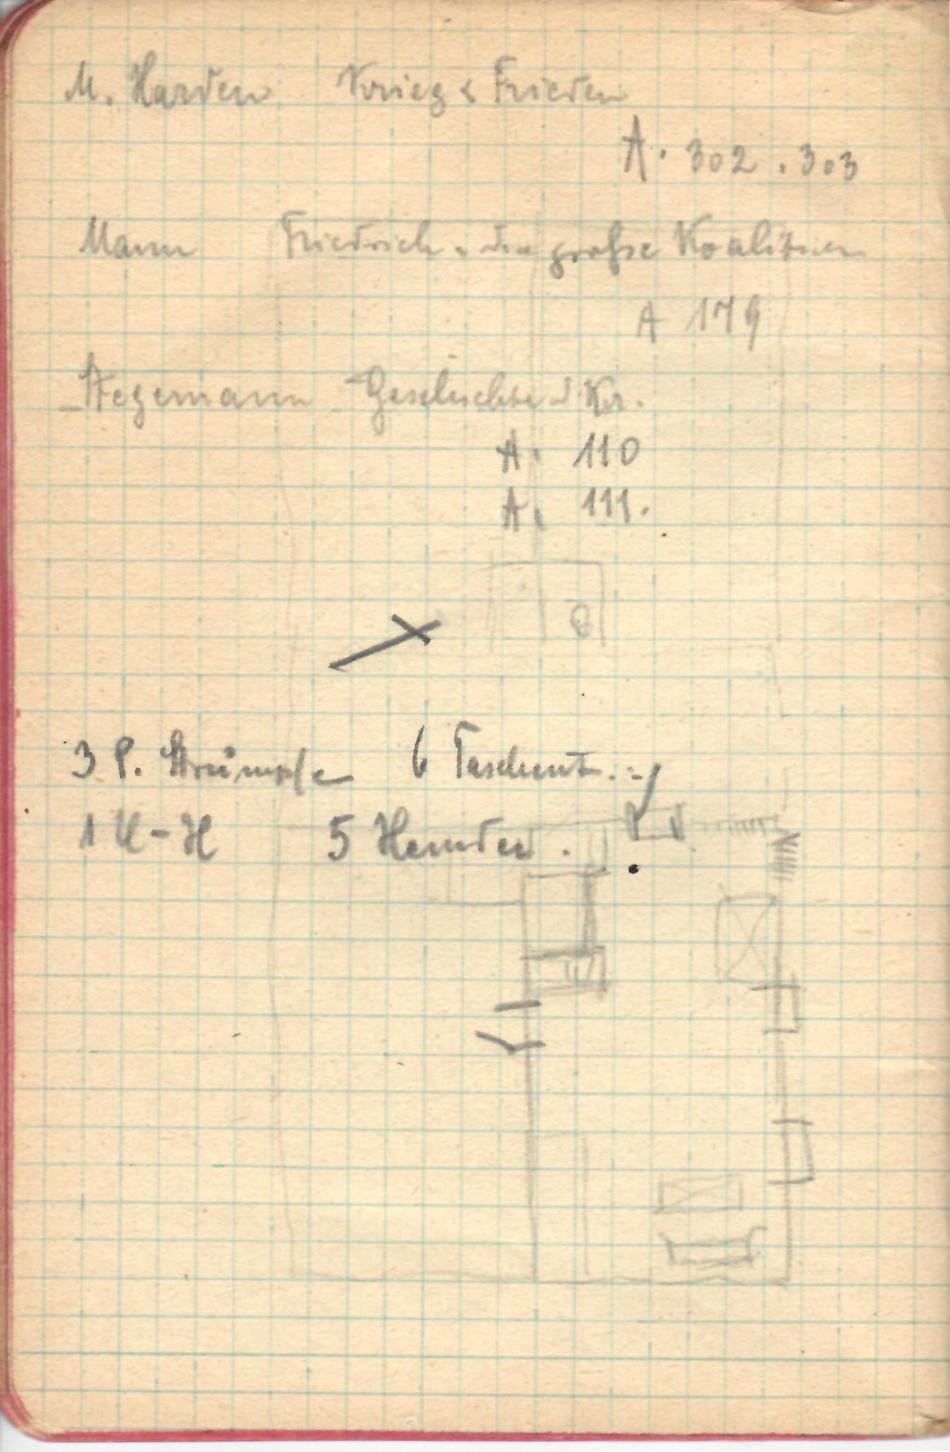 M. Harden Krieg & Frieden
A. 302 . 303
Mann Friedrich u. die große Koalition
A 179
Stegemann Geschichte d. Kr.
A. 110
A. 111.
3 P. Strümpfe 6 Taschent. :-
1 U-H 5 Hemden .